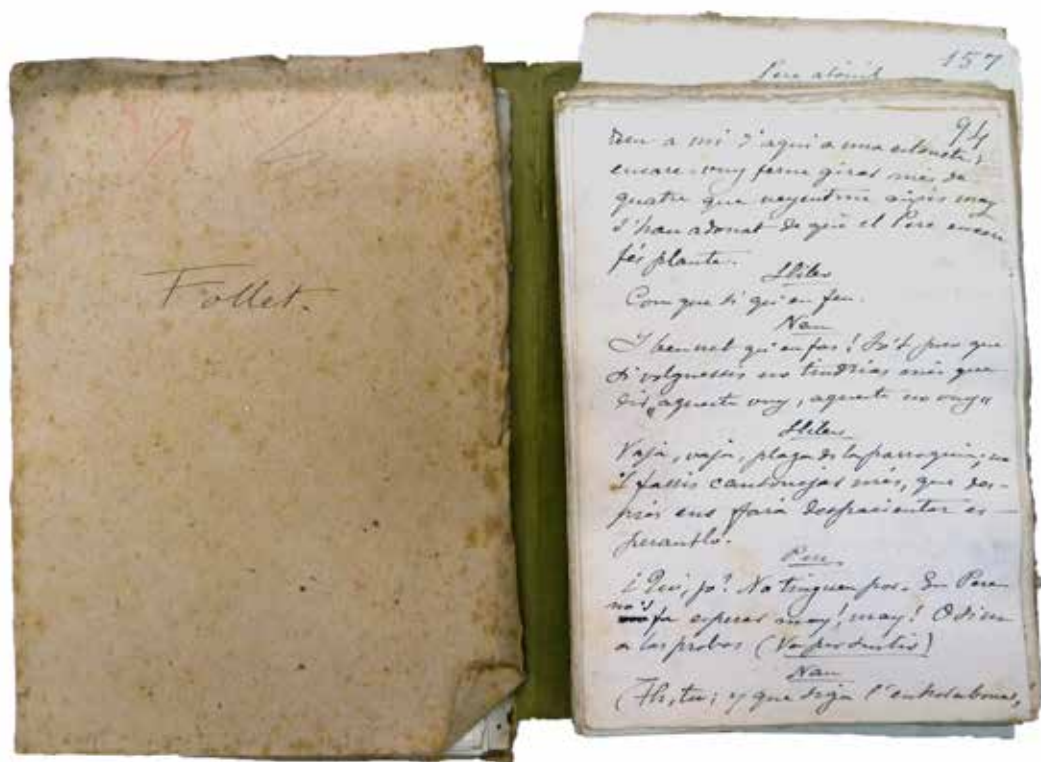 Follet.
157
Pere atònit
94
deu a mi d'aquí a una estoneta;
encare vuy ferne girar més de
quatre que veyentme aixís may
s'han adonat de què el Pere encara
fés planta.
Llibre
Com que si qu'en feu.
Nan
I ben net qu'en fas! Si't juro que
si volguessis no tindrías més que
dir „aquesta vuy, aquesta no vuy"
Vaja, vaja, plaga de la parroquia; no
't fassis cansonejar més, que des-
prés ens farà despacientar es-
perantlo.
Pere
¿Qui, jo? No tinguen por. En Pere
no's fa esperar may! may! O sinó
a las probas (Va per sortir)
Nan
(Ah, tu; y que deja l'enhorabona,